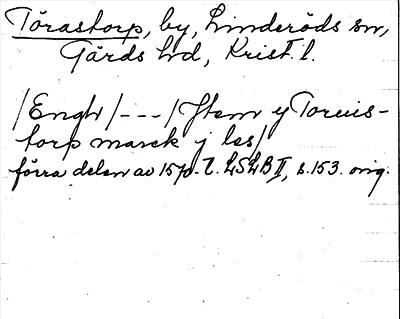 Törastorp, by, Linderöds sn,
Gärds hd, Krist. l.
/Engh/---/Jtem y Toruis-
torp marck j les/
förra delen av 1570-t. LSLB II, s. 153. orig.